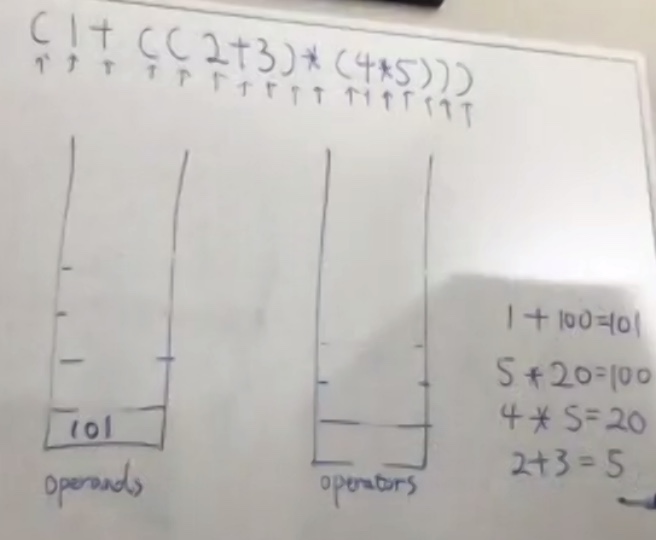 (1+((2+3)*(4*5)))
101
operands
operators
1+100=101
5*20=100
4*5=20
2+3=5